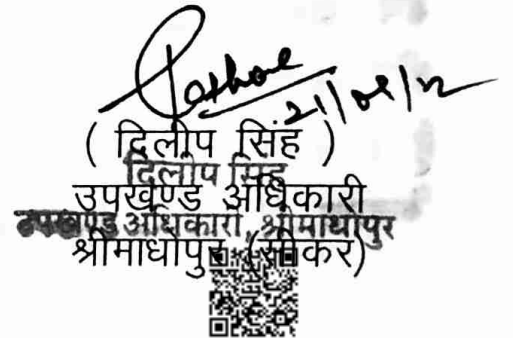 21/
( दिलीप सिंह )
दिलीप सिंह
उपखण्ड अधिकारी
उपखण्ड अधिकारी, श्रीमाधोपुर
श्रीमाधोपुर (सीकर)